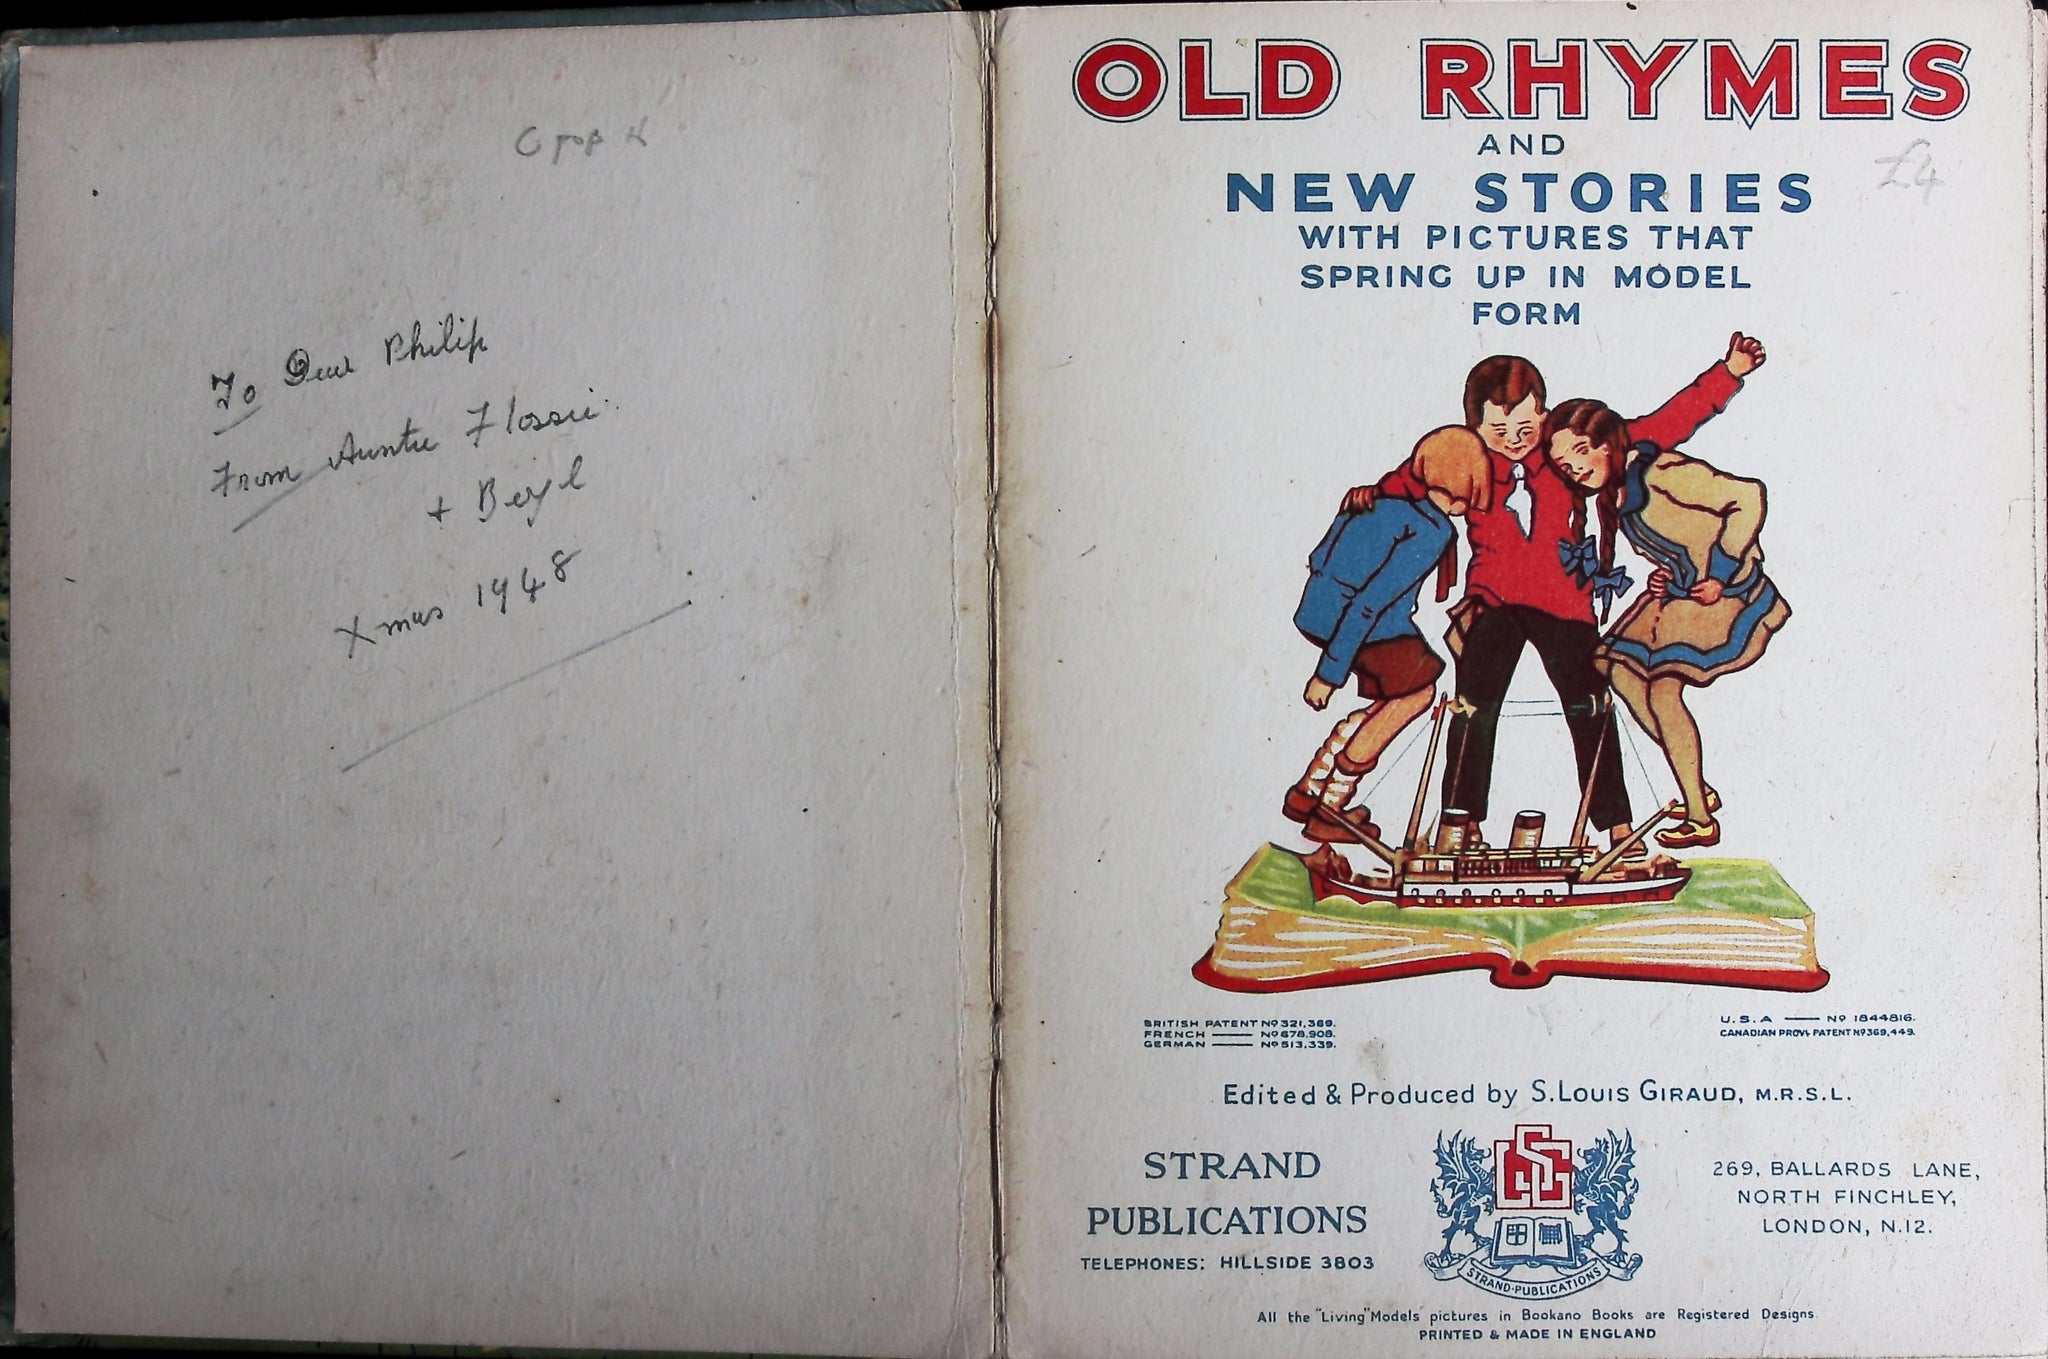 To Dear Philip
From Auntie Flossie
+ Beryl
Xmas 1948
OLD RHYMES
AND
NEW STORIES
WITH PICTURES THAT
SPRING UP IN MODEL
FORM
£4
BRITISH PATENT Nº 321,369.
FRENCH — Nº 678,908.
GERMAN — Nº 513,339.
U.S.A — Nº 1844816.
CANADIAN PROV. PATENT Nº 369,449.
Edited & Produced by S. LOUIS GIRAUD, M.R.S.L.
STRAND
PUBLICATIONS
TELEPHONES: HILLSIDE 3803
SLG
STRAND·PUBLICATIONS
269, BALLARDS LANE,
NORTH FINCHLEY,
LONDON, N.12.
All the "Living" Models pictures in Bookano Books are Registered Designs
PRINTED & MADE IN ENGLAND